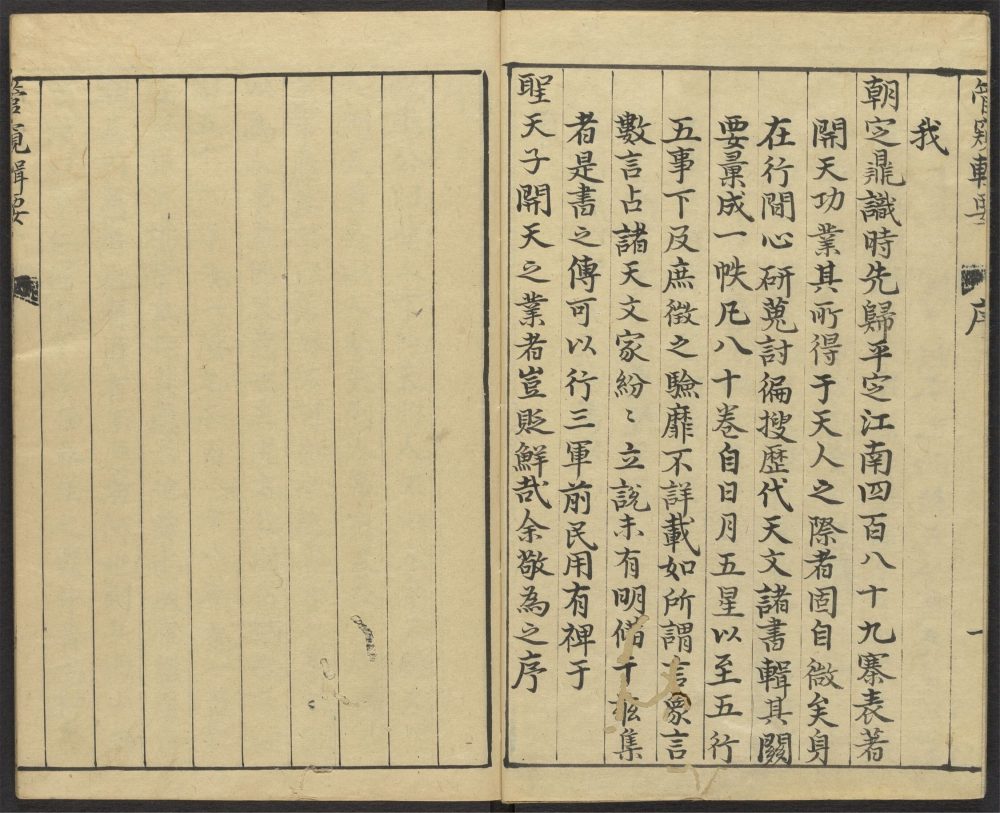 序
一
我
朝定鼎識時先歸平定江南四百八十九寨表著
開天功業其所得于天人之際者固自微矣身
在行間心研蒐討徧搜歷代天文諸書輯其關
要彙成一帙凡八十卷自日月五星以至五行
五事下及庶徵之驗靡不詳載如所謂言象言
數言占諸天文家紛〻立說未有明備于茲集
者是書之傳可以行三軍前民用有裨于
聖天子開天之業者豈貶鮮哉余敬為之序
管窺輯要